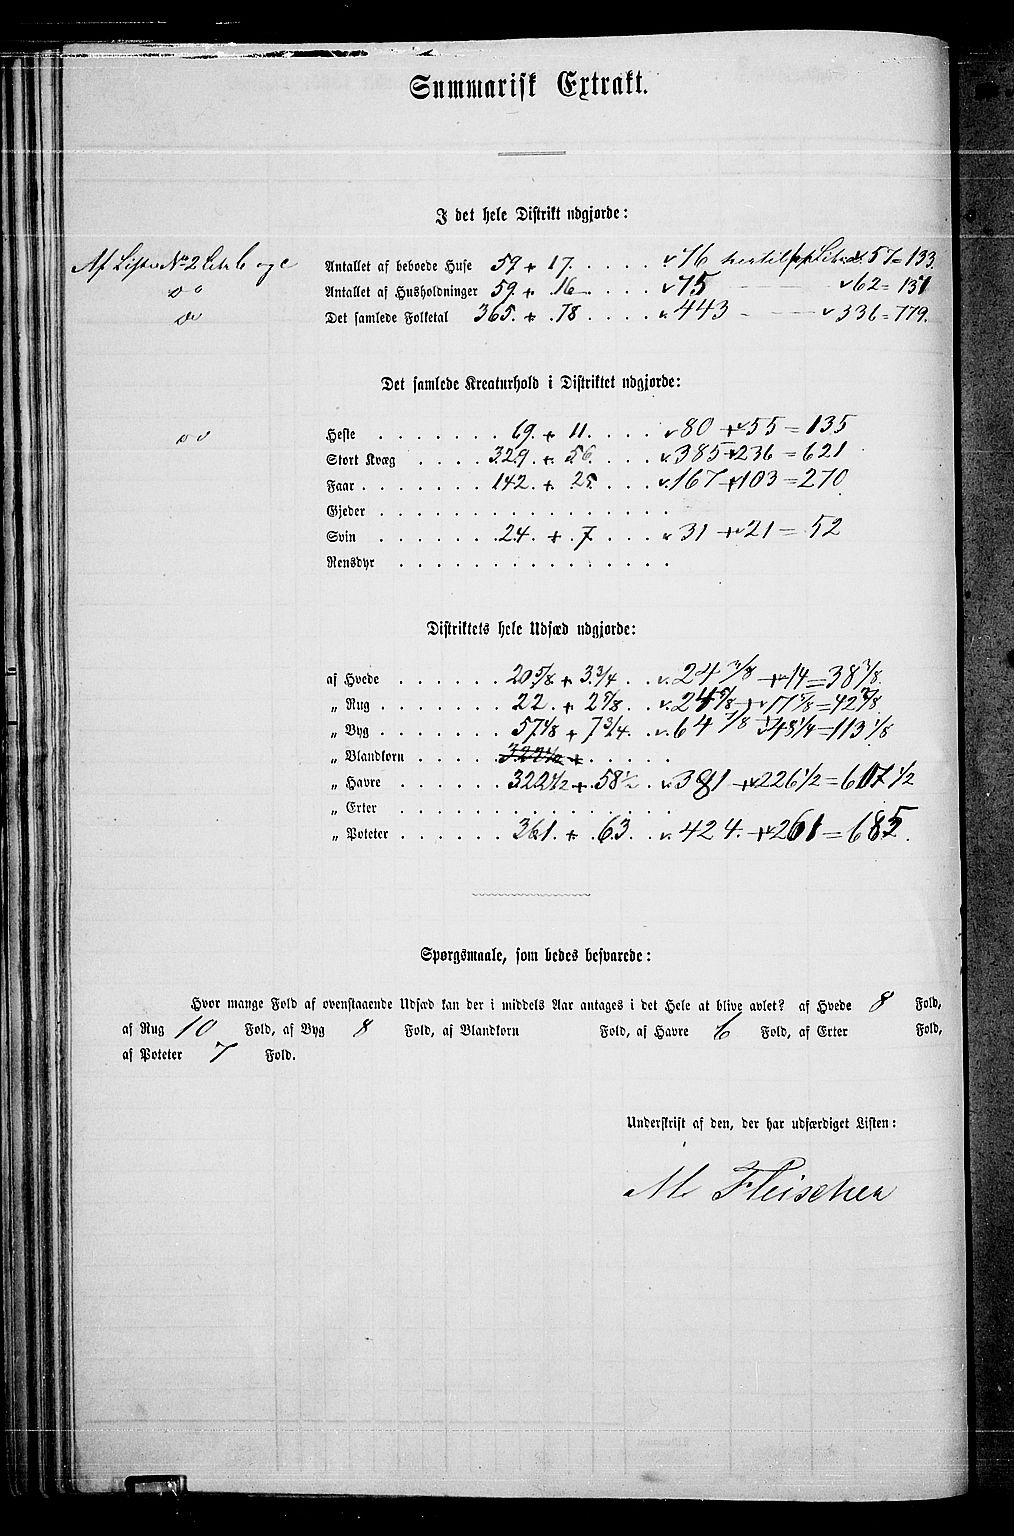 Summarisk Extrakt.
I det hele Distrikt udgjorde:
Af Liste No 2 Litr. b og c Antallet af beboede Huse 59 + 17 76 hertil fra Litr. a. 57 = 133.
do Antallet af Husholdninger 59 + 16 75 62 = 137
do Det samlede Folketal 365 + 78 443 336 = 779.
Det samlede Kreaturhold i Distriktet udgjorde:
do Heste 69 + 11 80 + 55 = 135
Stort Kvæg 329 + 56 385 + 236 = 621
Faar 142 + 25 167 + 103 = 270
Gjeder
Svin 24 + 7 31 + 21 = 52
Rensdyr
Distriktets hele Udsæd udgjorde:
af Hvede 20 5/8 + 3 3/4 24 3/8 + 14 = 38 3/8
„ Rug 22 + 2 7/8 24 7/8 + 17 5/8 = 42 4/8
„ Byg 57 1/8 + 7 3/4 64 7/8 + 48 1/4 = 113 1/8
„ Blandkorn 322 1/2 +
„ Havre 322 1/2 + 58 1/2 381 + 226 1/2 = 607 1/2
„ Erter
„ Poteter 361 + 63 424 + 261 = 685.
Spørgsmaale, som bedes besvarede:
Hvor mange Fold af ovenstaaende Udsæd kan der i middels Aar antages i det Hele at blive avlet? af Hvede 8 Fold,
af Rug 10 Fold, af Byg 8 Fold, af Blandkorn Fold, af Havre 6 Fold, af Erter Fold,
af Poteter 7 Fold.
Underskrift af den, der har udfærdiget Listen:
M Fleischer